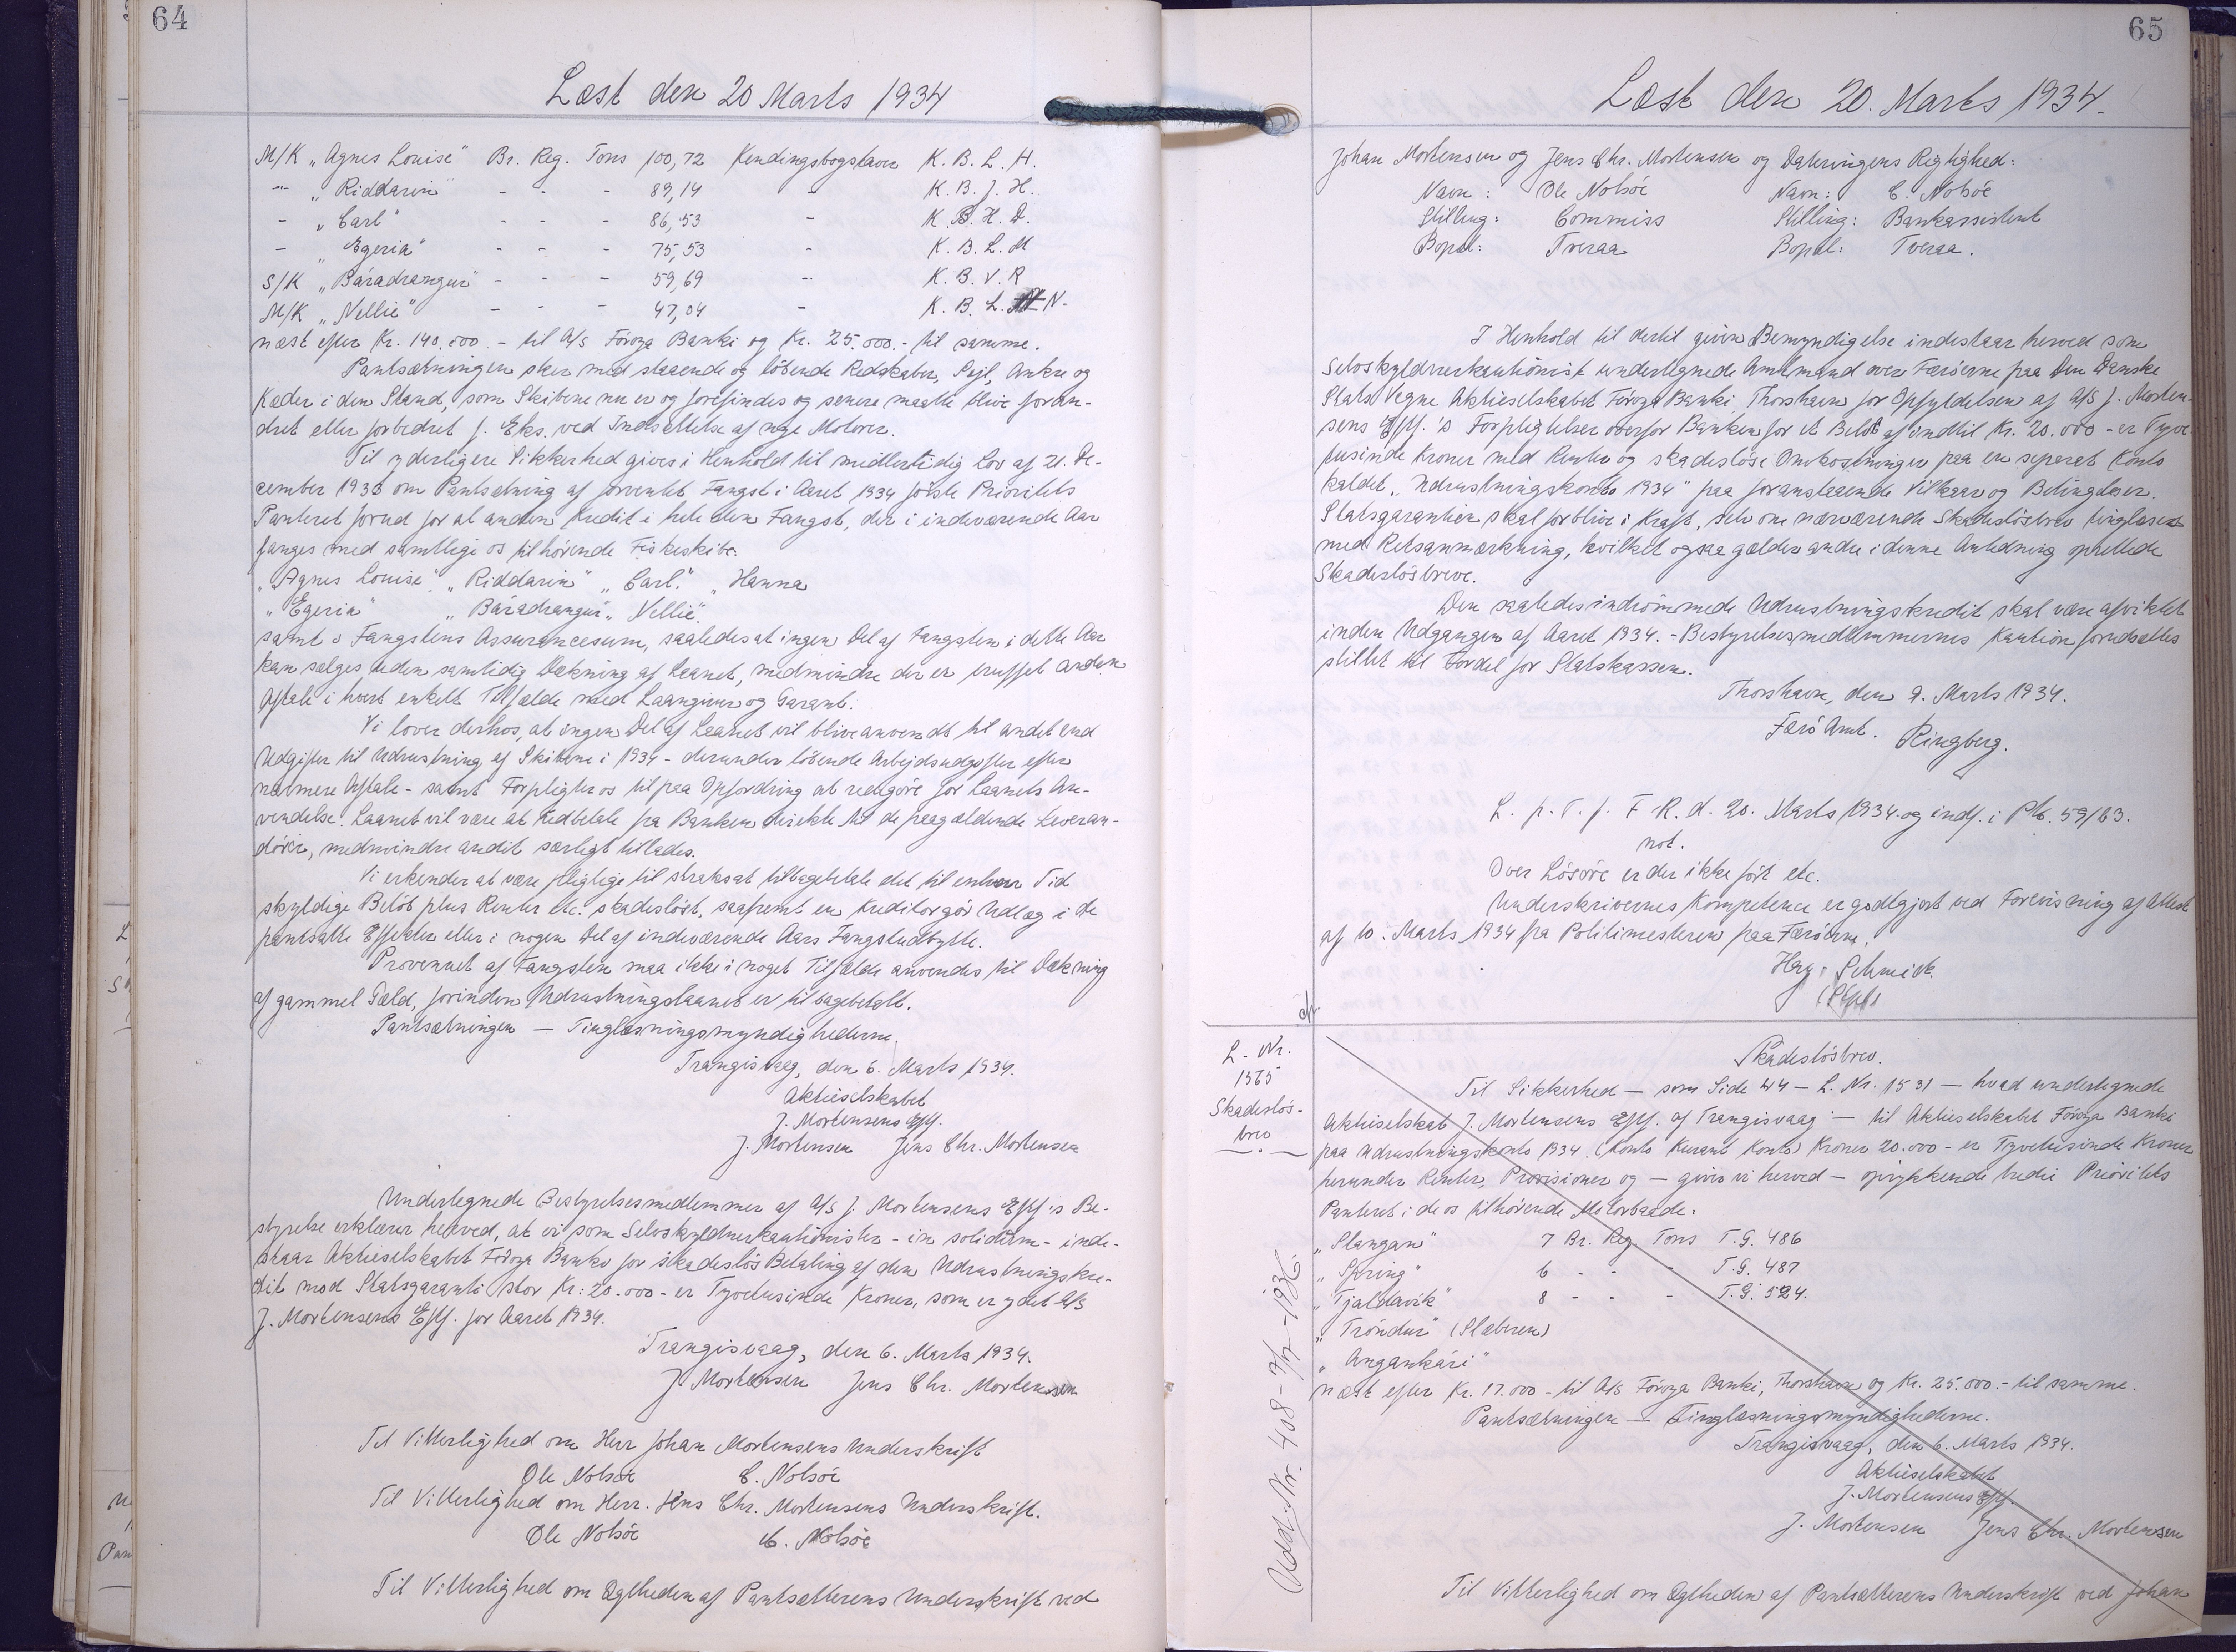 64
Læst den 20 Marts 1934
M/K „Agnes Louise" Br. Reg. Tons 100,72 Kendingsbogstaver K. B. L. H.
-"- „Riddarin" - - - 89,14 - K. B. J. H.
- „Carl" - - - 86,53 - K. B. H. D.
- „Egeria" - - - 75,53 - K. B. L. M
S/K „Báradrangur" - - - 59,69 - K. B. V. R
M/K „Nellie" - - - 47,04 - K. B. L. N.
næst efter Kr. 140.000.- til A/S Föroya Banki og Kr. 25.000.- til samme.
Pantsætningen sker med staaende og löbende Redskaber, Sejl, Ankre og
Kæder i den Stand, som Skibene nu er og forefindes og senere maatte blive foran-
dret eller forbedret f. Eks. ved Indsættelse af nye Motorer.
Til yderligere Sikkerhed gives i Henhold til midlertidig Lov af 21. De-
cember 1933 om Pantsætning af forventet Fangst i Aaret 1934 förste Prioritets
Panteret forud for al anden Kredit i hele den Fangst, der i indeværende Aar
fanges med samtlige os tilhörende Fiskeskibe:
„Agnes Louise" „Riddarin" „Carl" „Hanna
„Egeria" „Báradrangur" „Nellie"
samt i Fangstens Assurancesum, saaledes at ingen Del af Fangsten i dette Aar
kan sælges uden samtidig Dækning af Laanet, medmindre der er truffet anden
Aftale i hvert enkelt Tilfælde med Laangiver og Garant.
Vi lover derhos, at ingen Del af Laanet vil blive anvendt til andet end
Udgifter til Udrustning af Skibene i 1934 - derunder löbende Arbejdsudgifter efter
nærmere Aftale - samt Forpligter os til paa Opfordring at redegöre for Laanets An-
vendelse. Laanet vil være at udbetale fra Banken direkte til de paagældende Leveran-
dörer, medmindre andet særligt tillades.
Vi erkender at være pligtige til straks at tilbagebetale det til enhver Tid
skyldige Belöb plus Renter etc. skadeslöst, saafremt en Kreditor gör Udlæg i de
pantsatte Effekter eller i nogen Del af indeværende Aars Fangstudbytte.
Provenuet af Fangsten maa ikke i noget Tilfælde anvendes til Dækning
af gammel Gæld, forinden Udrustningslaanet er tilbagebetalt.
Pantsætningen — Tinglæsningsmyndighederne.
Trangisvaag, den 6. Marts 1934.
Aktieselskabet
J. Mortensens Eftf.
J. Mortensen Jens Chr. Mortensen
Undertegnede Bestyrelsesmedlemmer af A/S J. Mortensens Eftf.'s Be-
styrelse erklærer herved, at vi som Selvskyldnerkautionister - in solidum - inde-
staar Aktieselskabet Föroya Banki for skadeslös Betaling af den Udrustningskre-
dit mod Statsgaranti stor Kr: 20.000 - er Tyvetusinde Kroner, som er ydet A/S
J. Mortensens Eftf. for Aaret 1934.
Trangisvaag, den 6. Marts 1934.
J. Mortensen Jens Chr. Mortensen
Til Vitterlighed om Herr Johan Mortensens Underskrift
Ole Nolsöe C. Nolsöe
Til Vitterlighed om Herr. Jens Chr. Mortensens Underskrift.
Ole Nolsöe C. Nolsöe
Til Vitterlighed om Ægtheden af Pantsætterens Underskrift ved
65
Læst den 20. Marts 1934.
Johan Mortensen og Jens Chr. Mortensen og Dateringens Rigtighed:
Navn: Ole Nolsöe Navn: C. Nolsöe
Stilling: Commiss Stilling: Bankassistent
Bopæl: Tveraa Bopæl: Tveraa.
I Henhold til dertil given Bemyndigelse indestaar herved som
Selvskyldnerkautionist undertegnede Amtmand over Færöerne paa Den Danske
Stats Vegne Aktieselskabet Föroya Banki, Thorshavn for Opfyldelsen af A/S J. Morten-
sens Eftf.'s Forpligtelser overfor Banken for et Belöb af indtil Kr. 20.000 - er Tyve
tusinde Kroner med Renter og skadeslöse Omkostninger paa en separat Konto
kaldet „Udrustningskonto 1934" paa foranstaaende Vilkaar og Betingelser.
Statsgarantien skal forblive i Kraft, selv om nærværende Skadeslösbrev tinglæses
med Retsanmærkning, hvilket ogsaa gælder andre i denne Anledning oprettede
Skadeslösbreve.
Den saaledes indrömmede Udrustningskredit skal være afviklet
inden Udgangen af Aaret 1934. - Bestyrelsesmedlemmernes Kaution forudsættes
stillet til Fordel for Statskassen.
Thorshavn, den 9. Marts 1934.
Færö Amt. Ringberg.
L. p. T. f. F R. d. 20. Marts 1934 og indf. i Ptb. 59/63.
not.
Over Lösöre er der ikke fört etc.
Underskrivernes Kompetence er godtgjort ved Forevisning af Attest
af 10. Marts 1934 fra Politimesteren paa Færöerne.
Schmidt.
L. Nr.
1565
Skadeslös-
brev
Skadeslösbrev.
Til Sikkerhed — som Side 44 — L. Nr. 1531 — hvad undertegnede
Aktieselskab J. Mortensens Eftf. af Trangisvaag — til Aktieselskabet Föroya Banki
paa Udrustningskonto 1934. (Konto Kurant Konto) Kroner 20.000 - er Tyvetusinde Kroner
herunder Renter, Provisioner og — giver vi herved — oprykkende tredie Prioritets
Panteret i de os tilhörende Motorbaade:
„Slangan" 7 Br. Reg. Tons T.G. 486
„Spring" 6 - - - T.G. 487
„Tjaldavik" 8 - - - T.G. 524.
„Tróndur" (Slæberen)
„Angankári"
næst efter Kr. 17.000 - til A/S Föroya Banki, Thorshavn og Kr. 25.000.- til samme.
Pantsætningen — Tinglæsningsmyndighederne.
Trangisvaag, den 6. Marts 1934.
Aktieselskabet
J. Mortensens Eftf.
J. Mortensen Jens Chr. Mortensen
Til Vitterlighed om Ægtheden af Pantsætterens Underskrift ved Johan
Udd. Nr. 408 - 1936.